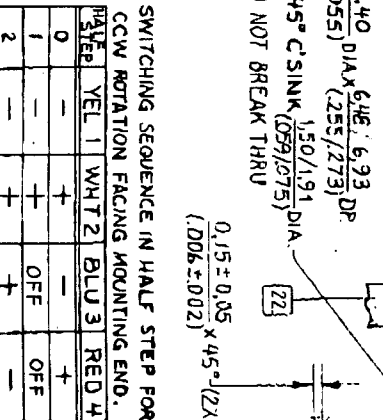 ,40
055) DIA X 6,48/6,93
(.255/.273) DP.
45° C'SINK 1,50/1,91
(.059/.075) DIA.
NOT BREAK THRU
0,15 ± 0,05
(.006±.002) X 45°
22
SWITCHING SEQUENCE IN HALF STEP FOR
CCW ROTATION FACING MOUNTING END.
HALF STEP YEL 1 WHT 2 BLU 3 RED 4
0 − + − +
1 − + OFF OFF
2 − + + −